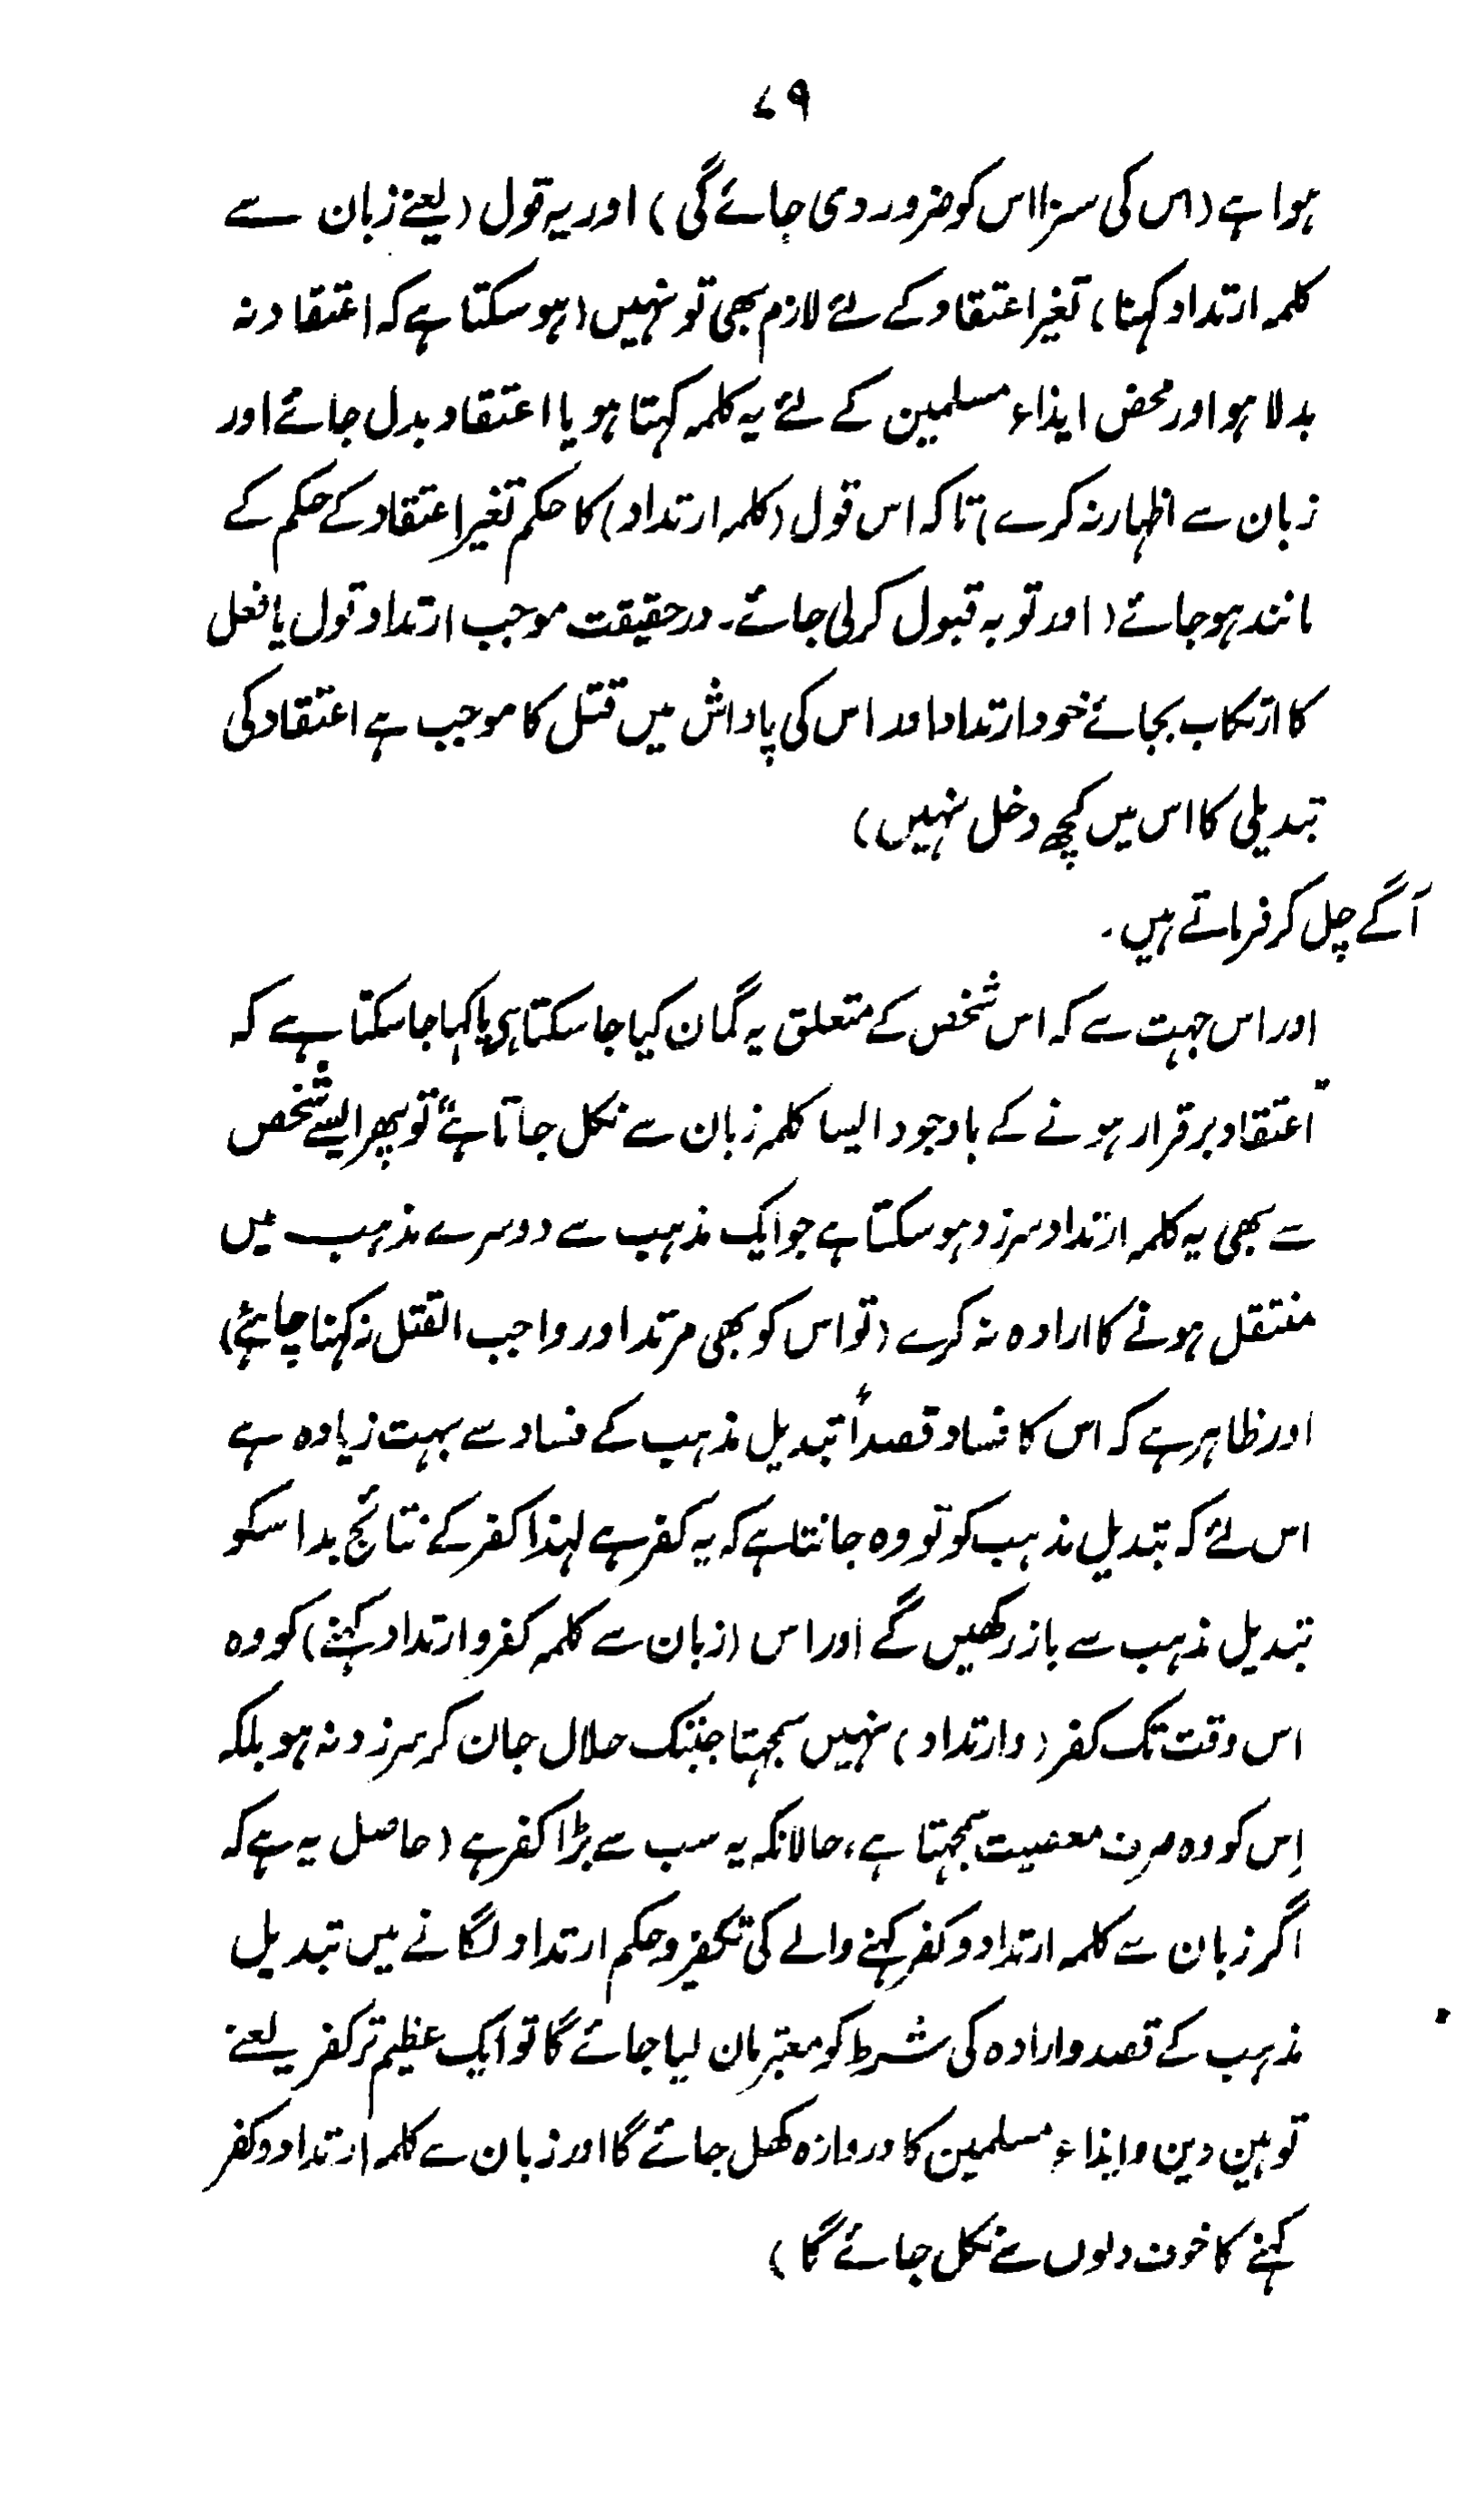 ۷۹
ہوا ہے (اس کی سزا اس کو ضرور دی جائے گی) اور یہ قول (یعنے زبان سے
کلمہ ارتداد کہنا) تغیر اعتقاد کے لئے لازم بھی تو نہیں (ہو سکتا ہے کہ اعتقاد نہ
بدلا ہو اور محض ایذاء مسلمین کے لئے یہ کلمہ کہتا ہو یا اعتقاد بدل جائے اور
زبان سے اظہار نہ کرے) تا کہ اس قول (کلمہ ارتداد) کا حکم تغیر اعتقاد کے حکم کے
مانند ہو جائے (اور توبہ قبول کرلی جائے۔ درحقیقت موجب ارتداد قول یا فعل
کا ارتکاب بجائے خود ارتداد اور اس کی پاداش میں قتل کا موجب ہے اعتقاد کی
تبدیلی کا اس میں کچھ دخل نہیں)
آگے چل کر فرماتے ہیں۔
اور اس جہت سے کہ اس شخص کے متعلق یہ گمان کیا جا سکتا ہی یا کہا جا سکتا ہے کہ
"اعتقاد برقرار ہونے کے باوجود ایسا کلمہ زبان سے نکل جاتا ہے" تو پھر ایسے شخص
سے بھی یہ کلمہ ارتداد سرزد ہو سکتا ہے جو ایک مذہب سے دوسرے مذہب میں
منتقل ہونے کا ارادہ نہ کرے (تو اس کو بھی مرتد اور واجب القتل نہ کہنا چاہئے)
اور ظاہر ہے کہ اس کا فساد قصداً تبدیل مذہب کے فساد سے بہت زیادہ ہے
اس لئے کہ تبدیل مذہب کو تو وہ جانتا ہے کہ یہ کفر ہے لہذا کفر کے نتائج بد اسکو
تبدیل مذہب سے باز رکھیں گے اور اس (زبان سے کلمہ کفر و ارتداد کہنے) کو وہ
اس وقت تک کفر (و ارتداد) نہیں سمجہتا جبتک حلال جان کر سرزد نہ ہو بلکہ
اِس کو وہ صرف معصیت سمجہتا ہے، حالانکہ یہ سب سے بڑا کفر ہے (حاصل یہ ہے کہ
اگر زبان سے کلمہ ارتداد و کفر کہنے والے کی تکفیر و حکم ارتداد لگانے میں تبدیل
مذہب کے قصد و ارادہ کی شرط کو معتبر مان لیا جائے گا تو ایک عظیم تر کفر یعنے
توہین دین و ایذاء مسلمین کا دروازہ کھل جائے گا اور زبان سے کلمہ ارتداد و کفر
کہنے کا خوف دلوں سے نکل جائے گا)